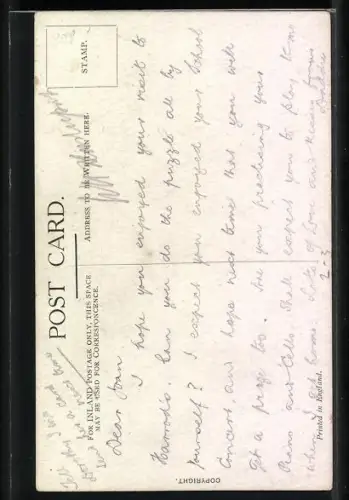 POST CARD.
STAMP.
FOR INLAND POSTAGE ONLY, THIS SPACE
MAY BE USED FOR CORRESPONDENCE.
ADDRESS TO BE WRITTEN HERE.
Dear Joan.
I hope you enjoyed your visit to
Harrods. Can you do the puzzle all by
yourself? I expect you enjoyed your School
Concert and hope next time that you will
get a prize too. Are your practising your
Piano and Cello. Shall expect you to play to me
when I get home. Lots of love and kisses from
COPYRIGHT.
Printed in England.